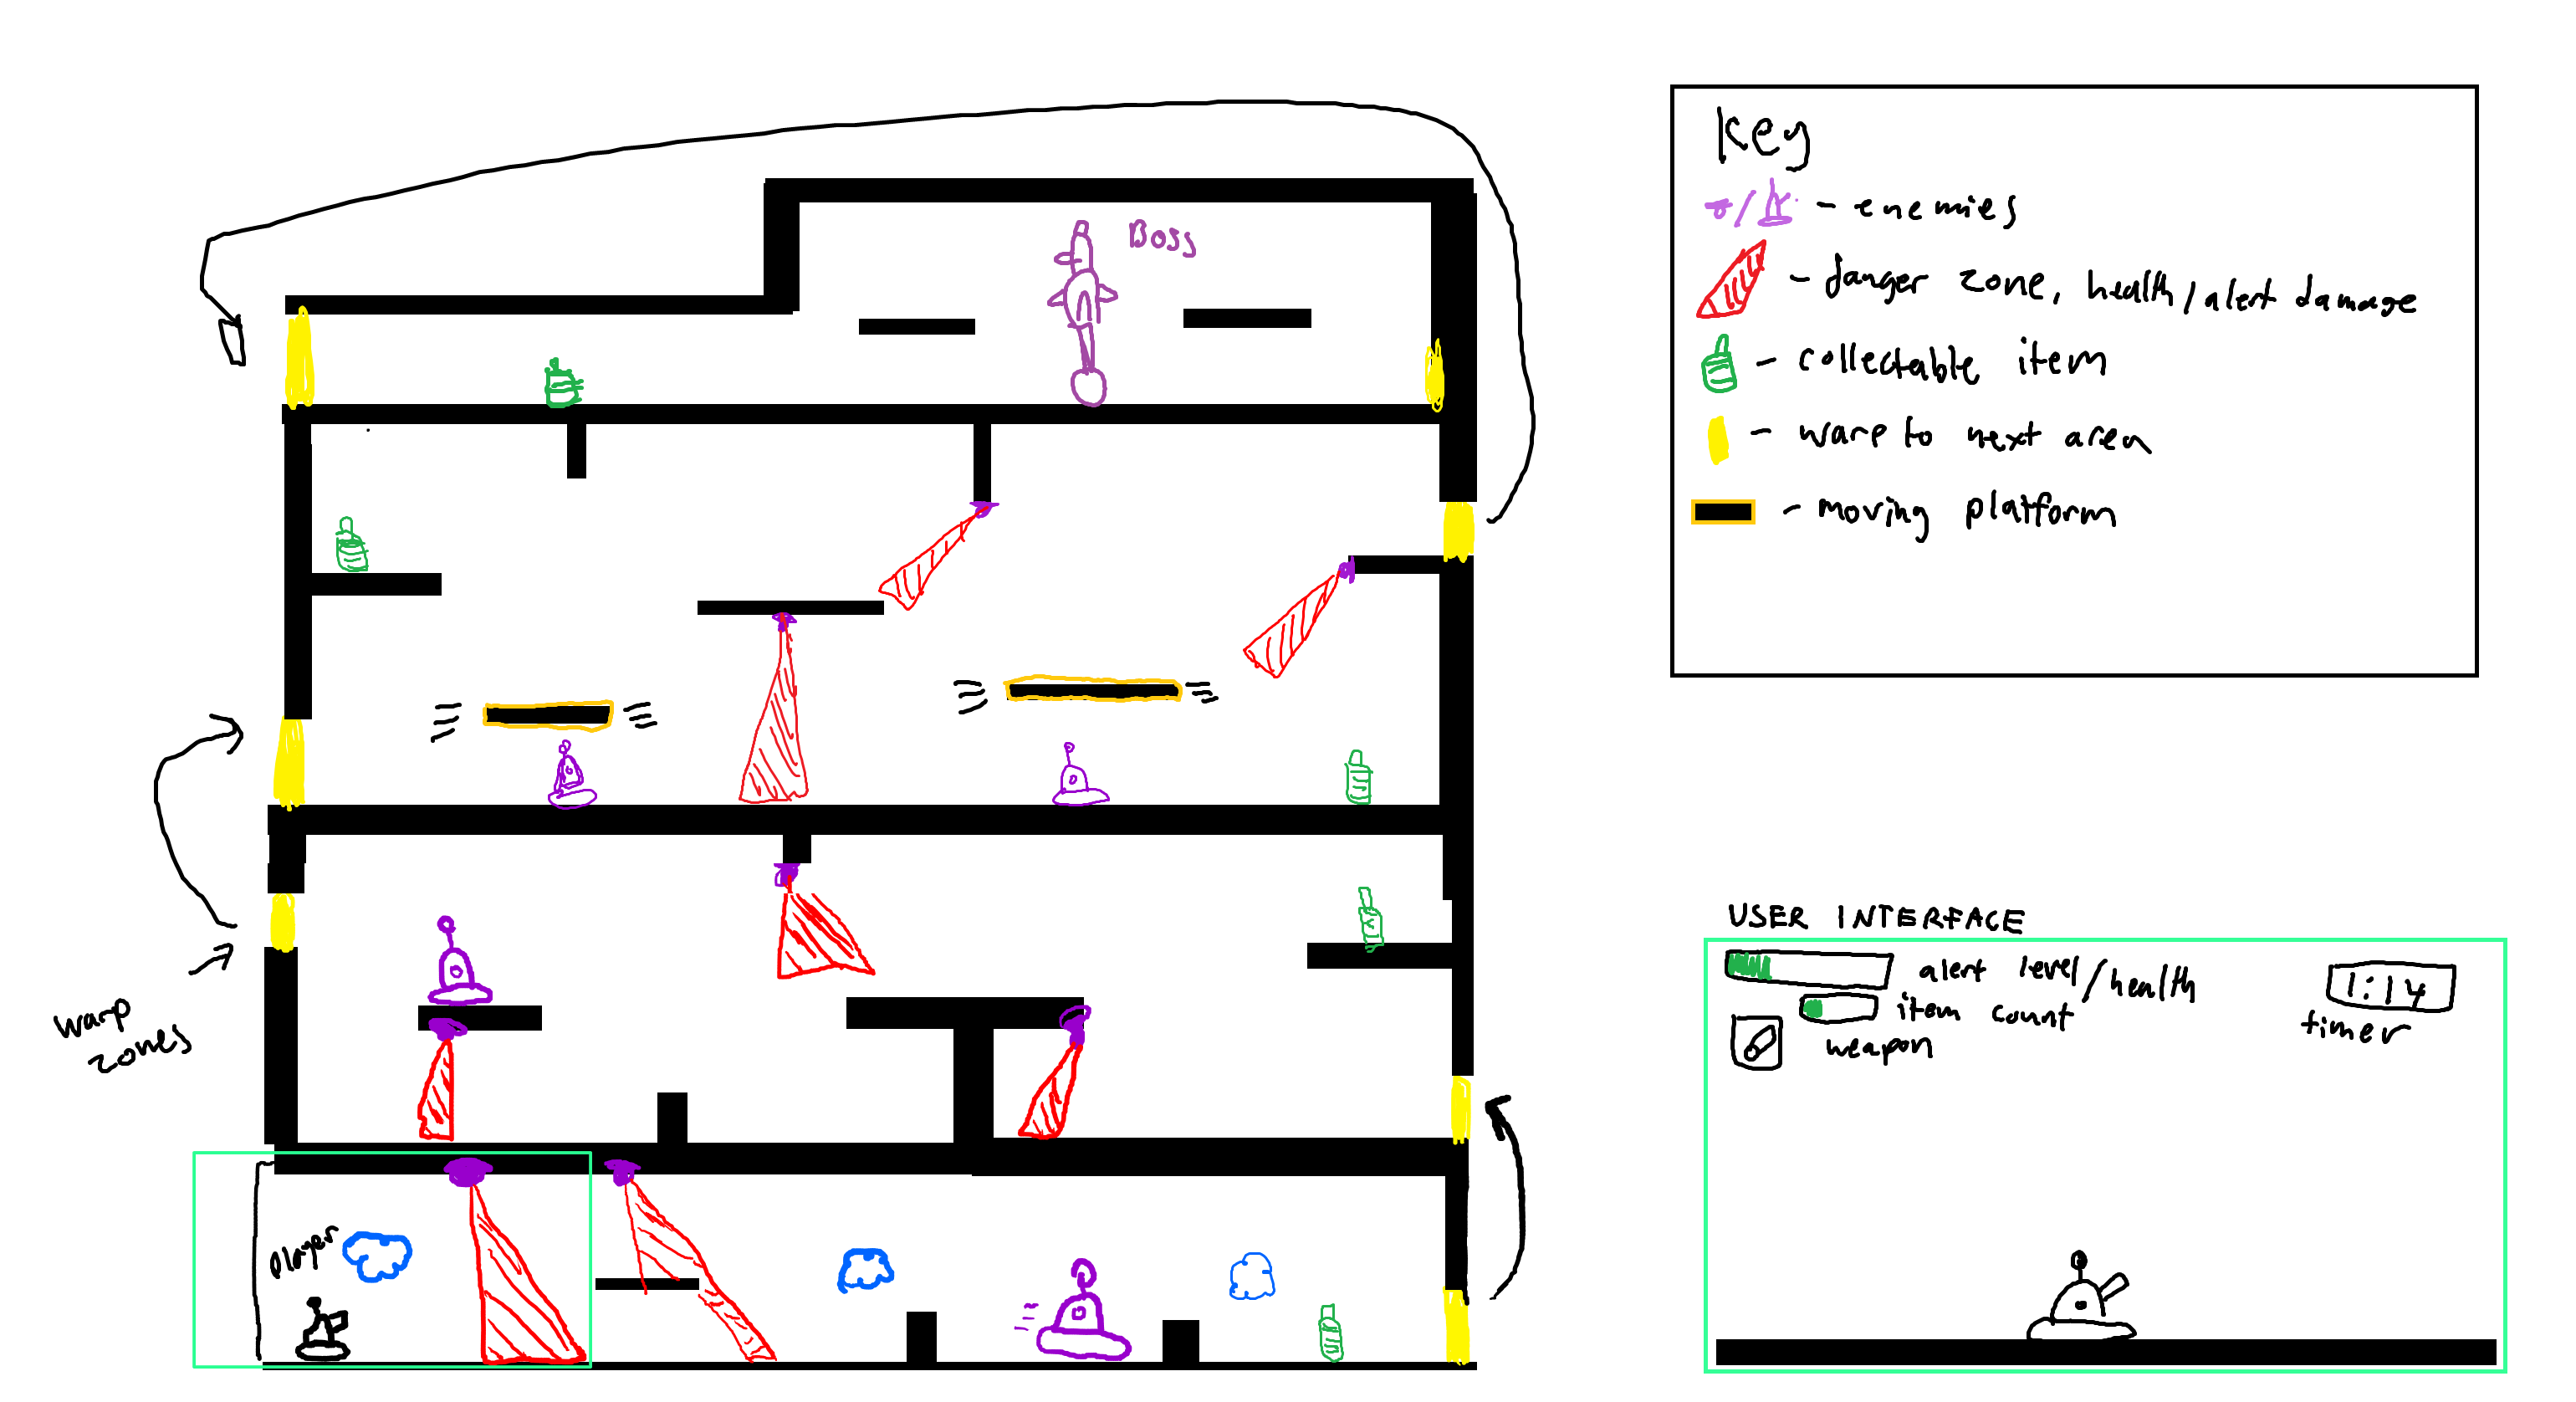 Boss
warp
zones
player
Key
/ - enemies
- danger zone, health/alert damage
- collectable item
- warp to next area
- moving platform
USER INTERFACE
alert level/health
item count
weapon
1:14
timer